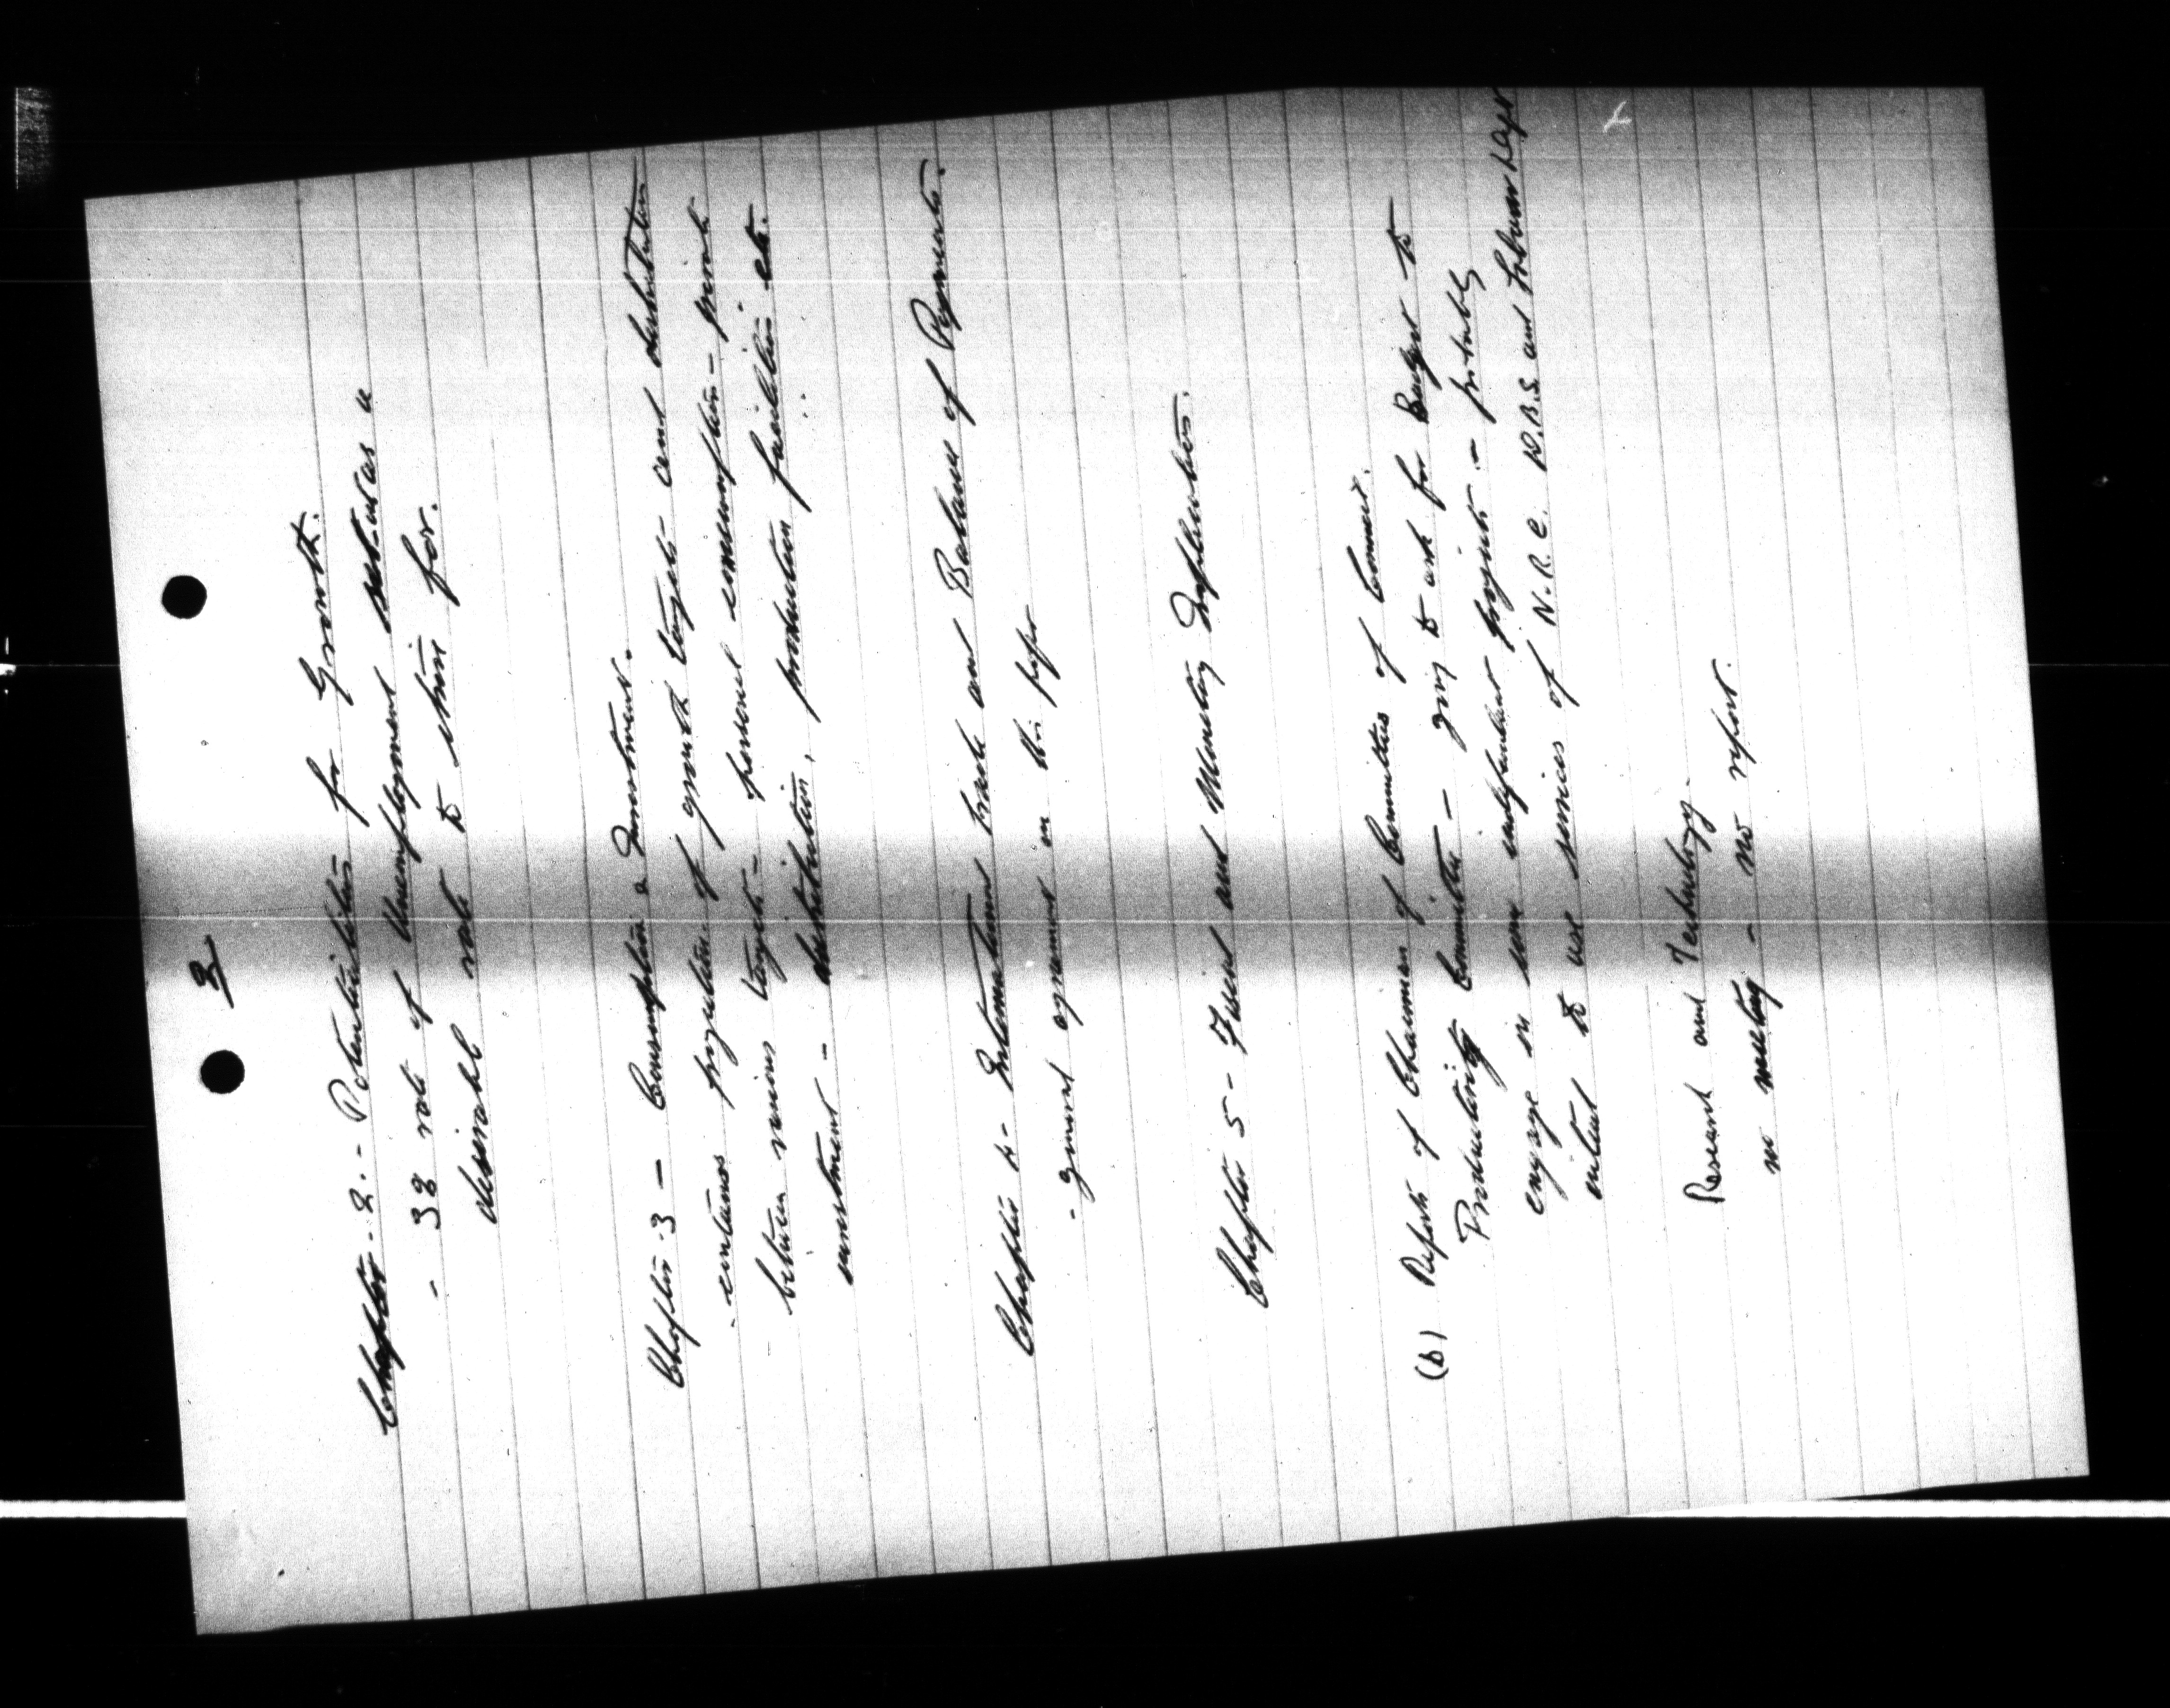 2
Chapter. 2. - Potentialities for Growth.
- 3% rate of Unemployment set-out as a
desirable rate to strive for.
Chapter 3 - Consumption & Investment.
- contains projection of growth targets - and distribution
between various targets - personal consumption - private
investment - distribution, production facilities etc.
Chapter 4 - International Trade and Balance of Payments.
- general agreement on this paper
Chapter 5 - Fiscal and Monetary Implications.
(b) Reports of Chairmen of Committees of Council.
Productivity Committee - going to ask for Budget to
engage in some independent projects - probably
intend to use services of N.R.C. D.B.S. and Labour Dept
Research and Technology.
no meeting - no report.